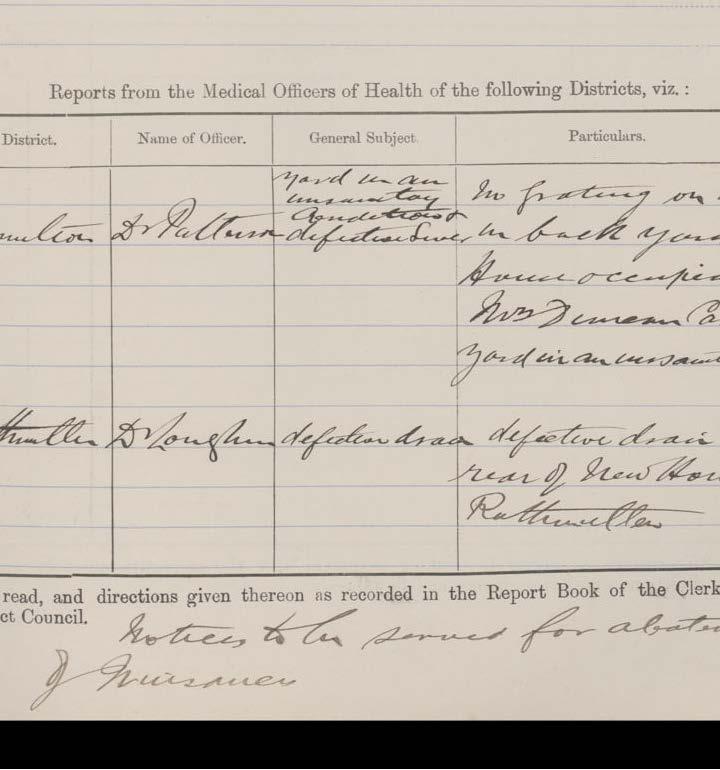 Reports from the Medical Officers of Health of the following Districts, viz. :
District. Name of Officer. General Subject. Particulars.
yard in an
unsanitary
Condition &
defective Sewer
Dr Patterson
No grating on
in back yard
House occupied
Mrs Duncan
yard in an unsani
Dr Loughlin defective drain defective drain
rear of New Hou
Rathmullen
read, and directions given thereon as recorded in the Report Book of the Clerk
ct Council.
Notices to be served for abate
of Nuisances